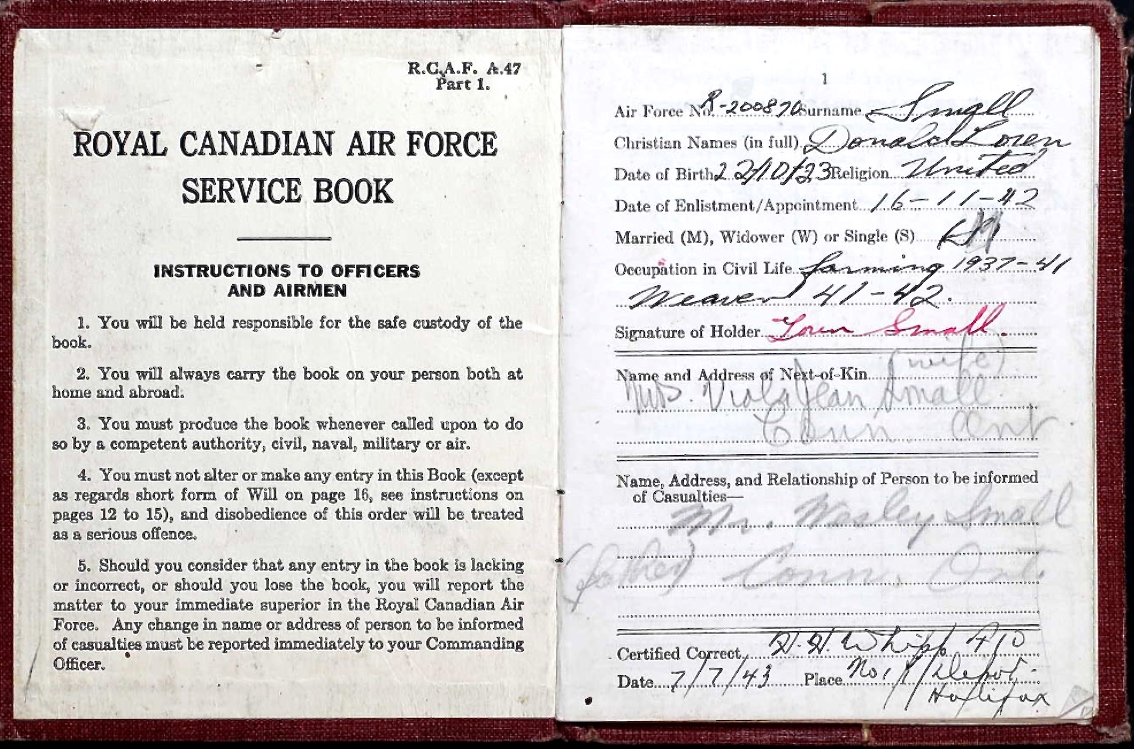 R.C.A.F. A.47
Part 1.
ROYAL CANADIAN AIR FORCE
SERVICE BOOK
INSTRUCTIONS TO OFFICERS
AND AIRMEN
1. You will be held responsible for the safe custody of the
book.
2. You will always carry the book on your person both at
home and abroad.
3. You must produce the book whenever called upon to do
so by a competent authority, civil, naval, military or air.
4. You must not alter or make any entry in this Book (except
as regards short form of Will on page 16, see instructions on
pages 12 to 15), and disobedience of this order will be treated
as a serious offence.
5. Should you consider that any entry in the book is lacking
or incorrect, or should you lose the book, you will report the
matter to your immediate superior in the Royal Canadian Air
Force. Any change in name or address of person to be informed
of casualties must be reported immediately to your Commanding
Officer.
1
Air Force No. R-200870 Surname Small
Christian Names (in full) Donald Loren
Date of Birth 22/10/23 Religion United
Date of Enlistment/Appointment 16-11-42
Married (M), Widower (W) or Single (S) M
Occupation in Civil Life farming 1937-41
Weaver 41-42.
Signature of Holder Loren Small.
Name and Address of Next-of-Kin (wife)
Mrs. Viola Jean Small
Conn Ont
Name, Address, and Relationship of Person to be informed
of Casualties—
Mr. Wesley Small
(father) Conn, Ont.
Certified Correct, H. H. Whipp
Date 7/7/43 Place No. 1 Y Depot
Halifax